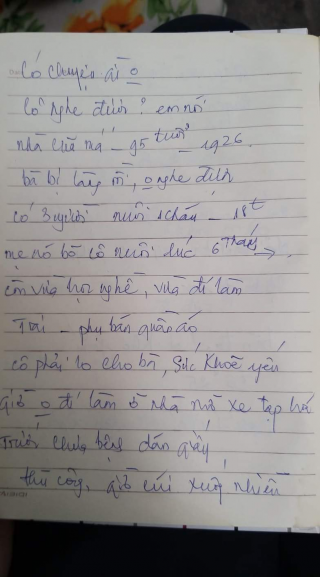 Có chuyện gì o
Cô nghe được ? em nói
nhà của má - 95 tuổi - 1926.
bà bị lãng rồi, o nghe được
có 3 người nuôi 1 cháu - 18t
mẹ nó bỏ cô nuôi lúc 6 tháng →.
còn vừa học nghề, vừa đi làm
Trai - phụ bán quần áo
cô phải lo cho bà, sức khoẻ yếu
giờ o đi làm ở nhà nữa xe tạp hoá
Trước chưa bệnh dán giấy
thủ công, giờ cúi xuống nhiều